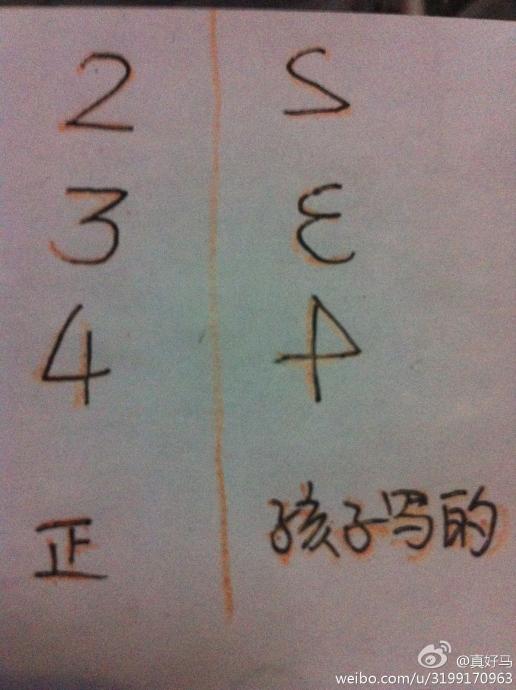 2 2
3 3
4 4
正 孩子写的
@真好马
weibo.com/u/3199170963